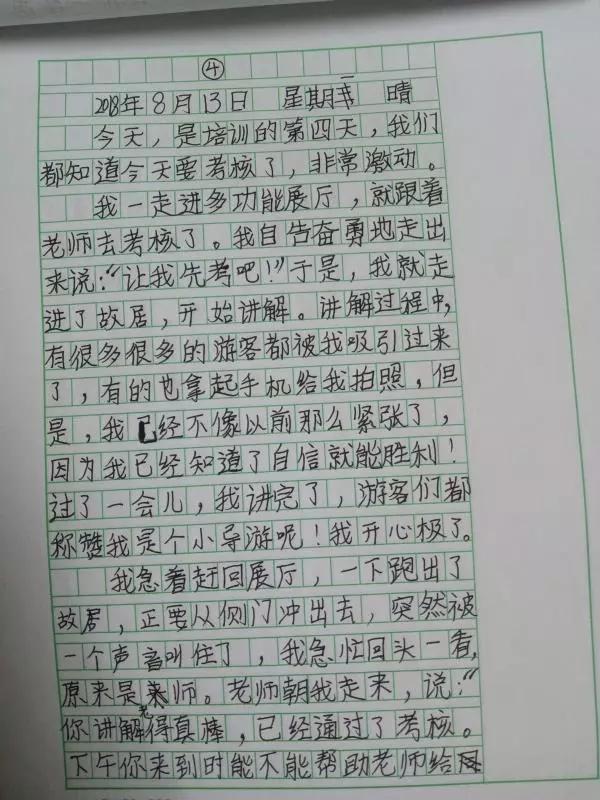 ④
2018年8月13日 星期一 晴
今天，是培训的第四天，我们
都知道今天要考核了，非常激动。
我一走进多功能展厅，就跟着
老师去考核了。我自告奋勇地走出
来说：“让我先考吧！”于是，我就走
进了故居，开始讲解。讲解过程中，
有很多很多的游客都被我吸引过来
了，有的也拿起手机给我拍照，但
是，我已经不像以前那么紧张了，
因为我已经知道了自信就能胜利！
过了一会儿，我讲完了，游客们都
称赞我是个小导游呢！我开心极了。
我急着赶回展厅，一下跑出了
故居，正要从侧门冲出去，突然被
一个声音叫住了，我急忙回头一看，
原来是老师。老师朝我走来，说：“
你讲解得真棒，已经通过了考核。
下午你来到时能不能帮助老师给